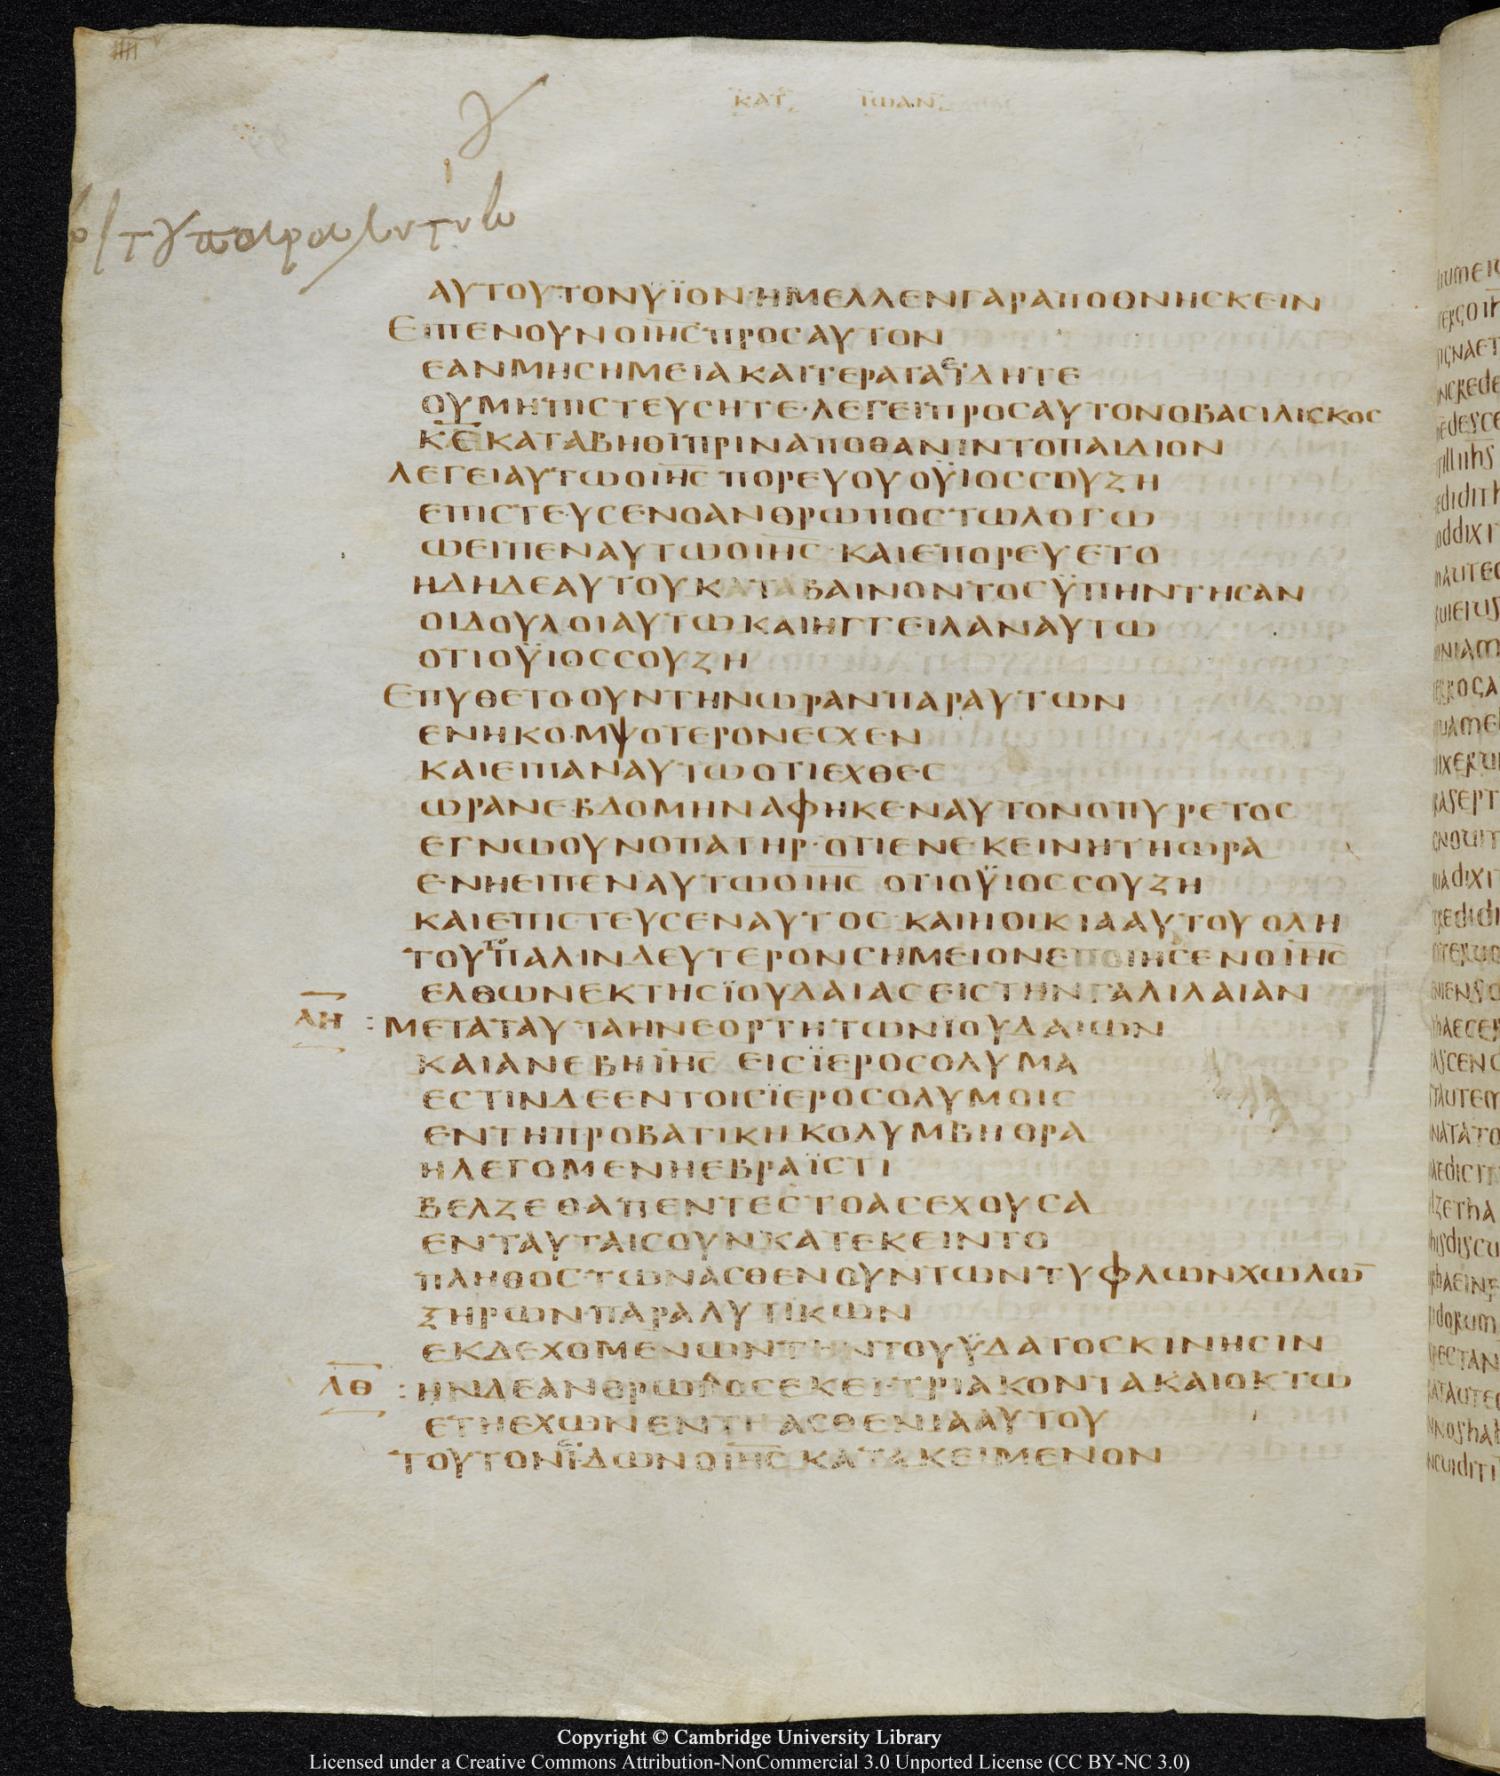 ΚΑΤ ΙΩΑΝ
ΑΥΤΟΥΤΟΝΫΪΟΝ·ΗΜΕΛΛΕΝΓΑΡΑΠΟΘΝΗCΚΕΙΝ
ΕΙΠΕΝΟΥΝΟΙΗC ΠΡΟCΑΥΤΟΝ
ΕΑΝΜΗCΗΜΕΙΑΚΑΙΤΕΡΑΤΑΕΪΔΗΤΕ
ΟΥΜΗΠΙCΤΕΥCΗΤΕ·ΛΕΓΕΙΠΡΟCΑΥΤΟΝΟΒΑCΙΛΙCΚΟC
Κ̅Ε̅ΚΑΤΑΒΗΘΙΠΡΙΝΑΠΟΘΑΝΙΝΤΟΠΑΙΔΙΟΝ
ΛΕΓΕΙΑΥΤΩΟΙΗC ΠΟΡΕΥΟΥΟΫΙΟCCΟΥΖΗ
ΕΠΙCΤΕΥCΕΝΟΑΝΘΡΩΠΟCΤΩΛΟΓΩ
ΩΕΙΠΕΝΑΥΤΩΟΙΗC·ΚΑΙΕΠΟΡΕΥΕΤΟ
ΗΔΗΔΕΑΥΤΟΥΚΑΤΑΒΑΙΝΟΝΤΟCΫΠΗΝΤΗCΑΝ
ΟΙΔΟΥΛΟΙΑΥΤΩΚΑΙΗΓΓΕΙΛΑΝΑΥΤΩ
ΟΤΙΟΫΙΟCCΟΥΖΗ
ΕΠΥΘΕΤΟΟΥΝΤΗΝΩΡΑΝΠΑΡΑΥΤΩΝ
ΕΝΗΚΟΜΨΟΤΕΡΟΝΕCΧΕΝ
ΚΑΙΕΙΠΑΝΑΥΤΩΟΤΙΕΧΘΕC
ΩΡΑΝΕΒΔΟΜΗΝΑΦΗΚΕΝΑΥΤΟΝΟΠΥΡΕΤΟC
ΕΓΝΩΟΥΝΟΠΑΤΗΡ·ΟΤΙΕΝΕΚΕΙΝΗΤΗΩΡΑ
ΕΝΗΕΙΠΕΝΑΥΤΩΟΙΗC ΟΤΙΟΫΙΟCCΟΥΖΗ
ΚΑΙΕΠΙCΤΕΥCΕΝΑΥΤΟC·ΚΑΙΗΟΙΚΙΑΑΥΤΟΥΟΛΗ
ΤΟΥΤΟΠΑΛΙΝΔΕΥΤΕΡΟΝCΗΜΕΙΟΝΕΠΟΙΗCΕΝΟΙΗC
ΕΛΘΩΝΕΚΤΗCΪΟΥΔΑΙΑCΕΙCΤΗΝΓΑΛΙΛΑΙΑΝ
ΛΗ : ΜΕΤΑΤΑΥΤΑΗΝΕΟΡΤΗΤΩΝΪΟΥΔΑΙΩΝ
ΚΑΙΑΝΕΒΗΙΗC ΕΙCΪΕΡΟCΟΛΥΜΑ
ΕCΤΙΝΔΕΕΝΤΟΙCΪΕΡΟCΟΛΥΜΟΙC
ΕΝΤΗΠΡΟΒΑΤΙΚΗΚΟΛΥΜΒΗΘΡΑ
ΗΛΕΓΟΜΕΝΗΕΒΡΑΪCΤΙ
ΒΕΛΖΕΘΑΠΕΝΤΕCΤΟΑCΕΧΟΥCΑ
ΕΝΤΑΥΤΑΙCΟΥΝΚΑΤΕΚΕΙΝΤΟ
ΠΛΗΘΟCΤΩΝΑCΘΕΝΟΥΝΤΩΝΤΥΦΛΩΝΧΩΛΩ̅
ΞΗΡΩΝΠΑΡΑΛΥΤΙΚΩΝ
ΕΚΔΕΧΟΜΕΝΩΝΤΗΝΤΟΥΫΔΑΤΟCΚΙΝΗCΙΝ
ΛΘ : ΗΝΔΕΑΝΘΡΩΠΟCΕΚΕΙ·ΤΡΙΑΚΟΝΤΑΚΑΙΟΚΤΩ
ΕΤΗΕΧΩΝΕΝΤΗΑCΘΕΝΙΑΑΥΤΟΥ
ΤΟΥΤΟΝΕΪΔΩΝΟΙΗC ΚΑΤΑΚΕΙΜΕΝΟΝ
Copyright © Cambridge University Library
Licensed under a Creative Commons Attribution-NonCommercial 3.0 Unported License (CC BY-NC 3.0)